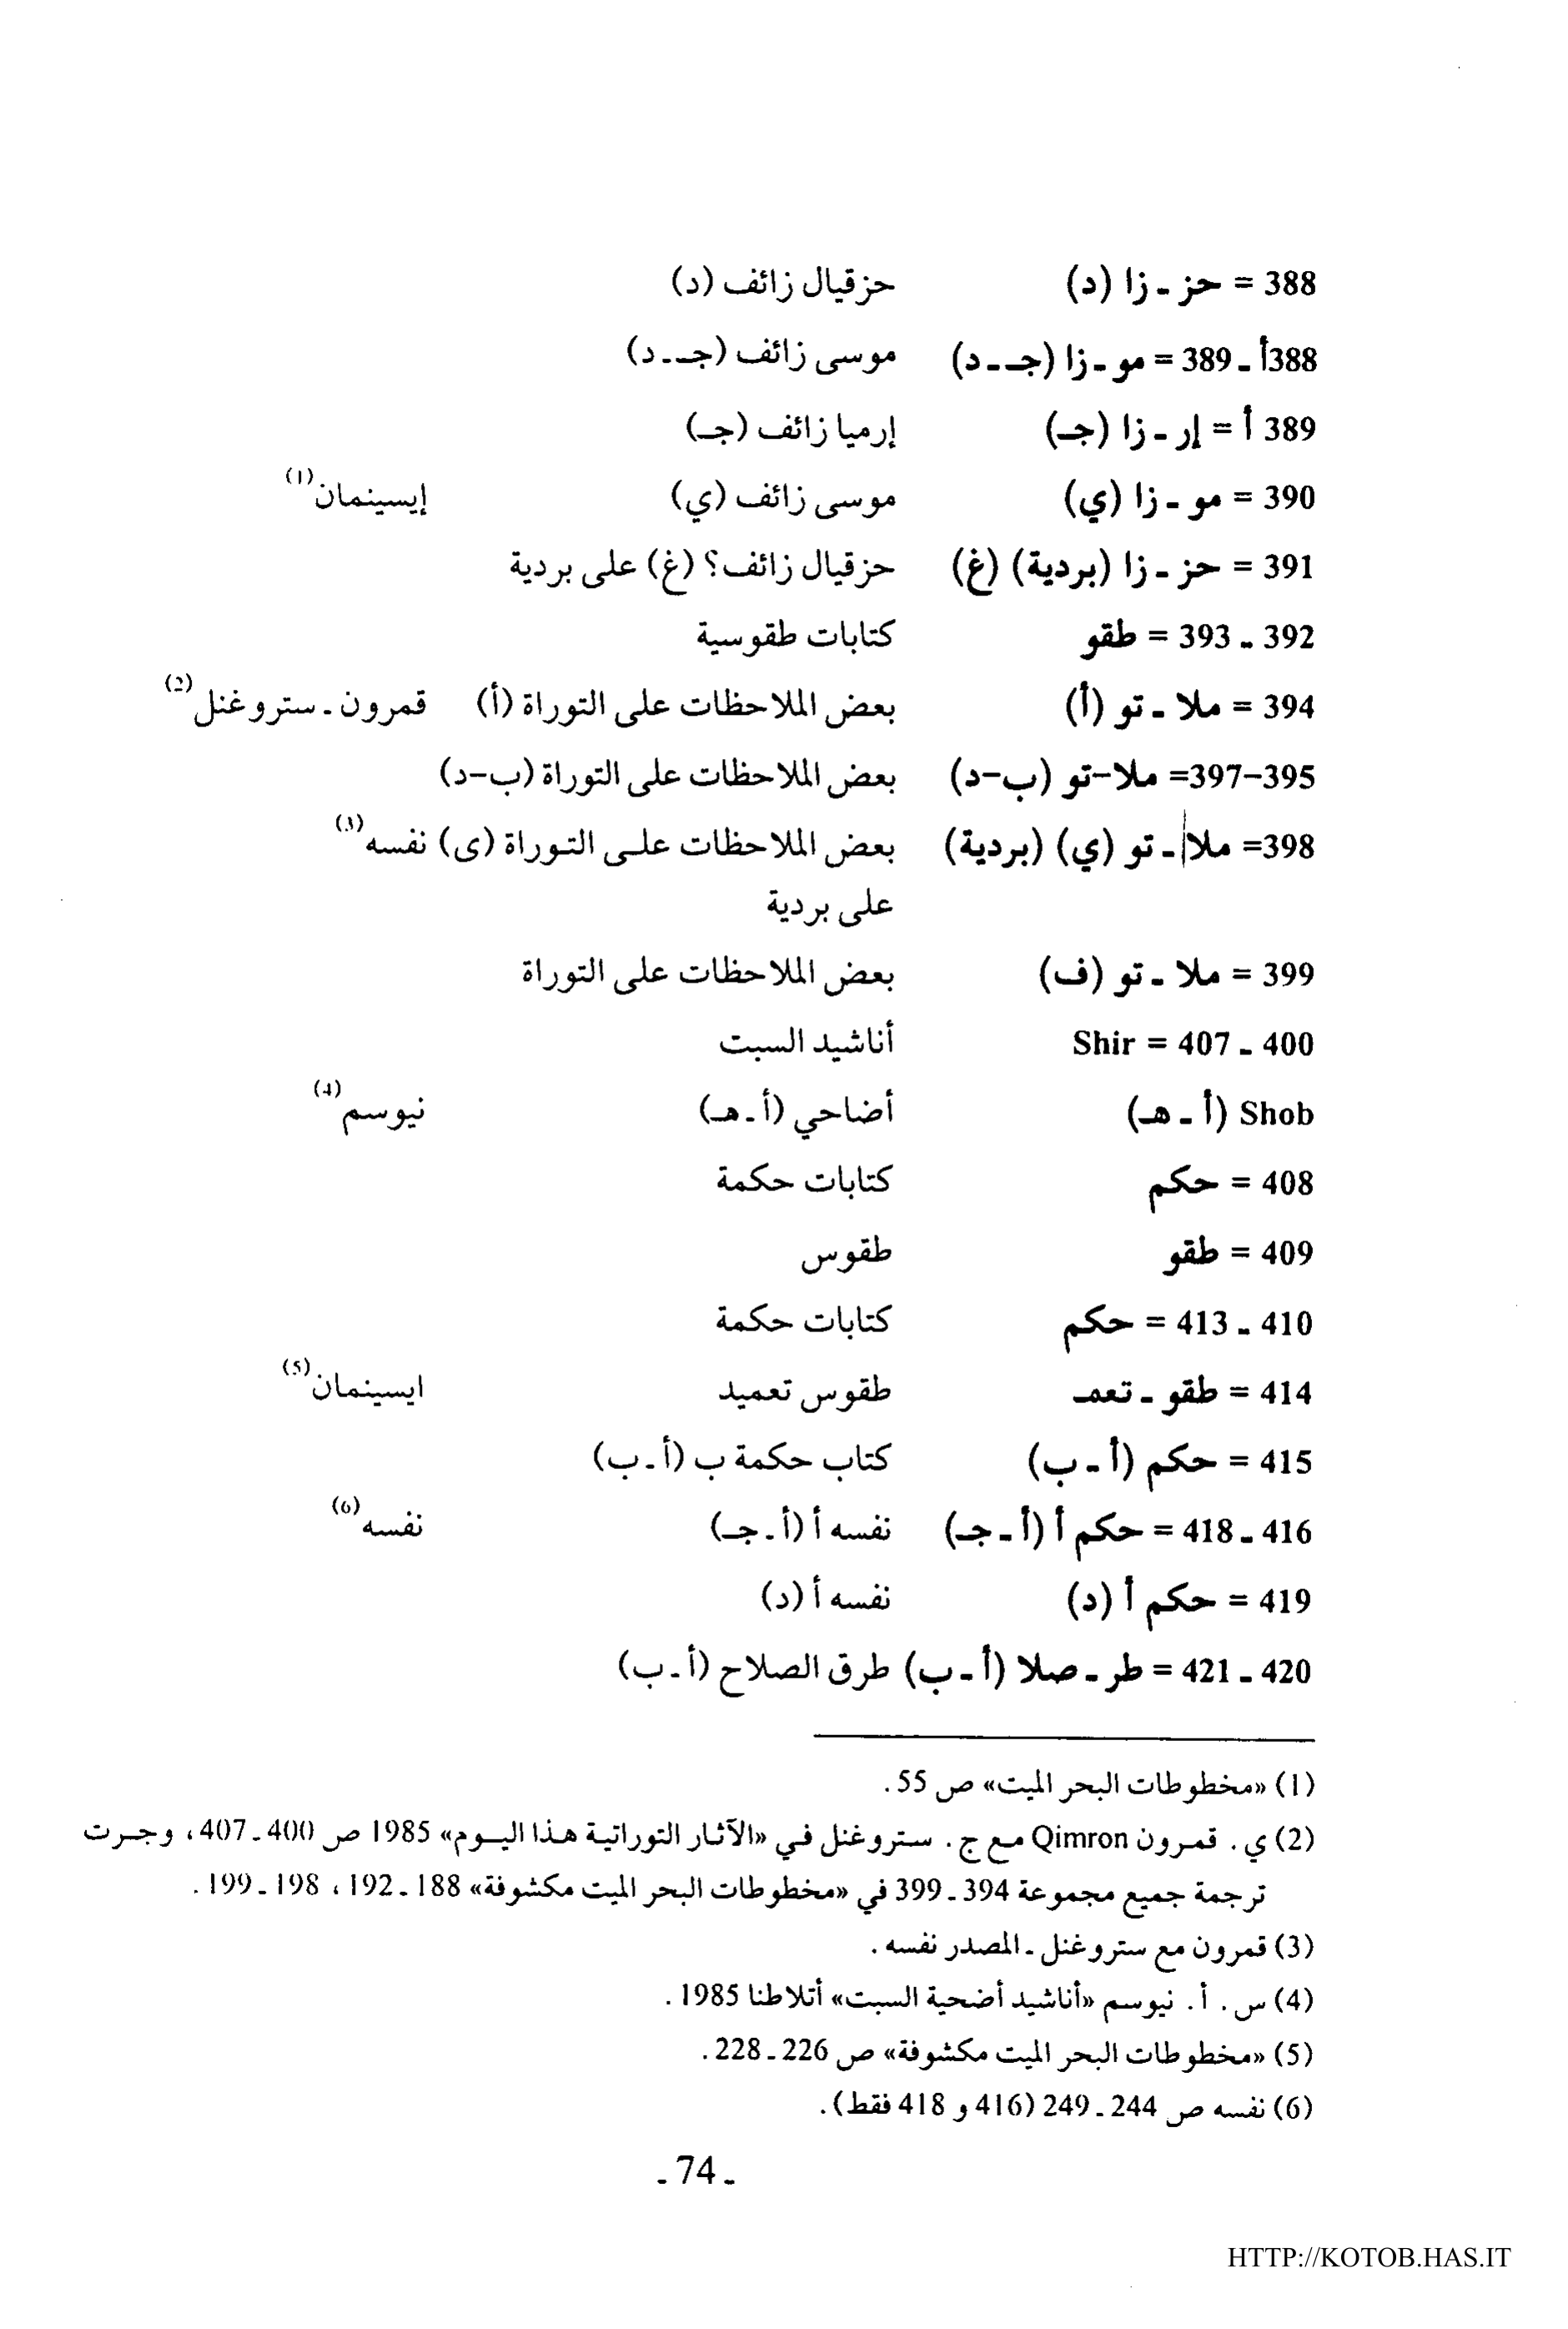 388 = حز ـ زا (د) حزقيال زائف (د)
388أ ـ 389 = مو ـ زا (جـ ـ د) موسى زائف (جـ ـ د)
389 أ = إر ـ زا (جـ) إرميا زائف (جـ)
390 = مو ـ زا (ي) موسى زائف (ي) إيسينمان(1)
391 = حز ـ زا (بردية) (غ) حزقيال زائف؟ (غ) على بردية
392 ـ 393 = طقو كتابات طقوسية
394 = ملا ـ تو (أ) بعض الملاحظات على التوراة (أ) قمرون ـ ستروغنل(2)
395–397= ملا–تو (ب–د) بعض الملاحظات على التوراة (ب–د)
398= ملا ـ تو (ي) (بردية) بعض الملاحظات على التوراة (ى) نفسه(3)
على بردية
399 = ملا ـ تو (ف) بعض الملاحظات على التوراة
400 ـ 407 = Shir أناشيد السبت
Shob (أ ـ هـ) أضاحي (أ ـ هـ) نيوسم(4)
408 = حكم كتابات حكمة
409 = طقو طقوس
410 ـ 413 = حكم كتابات حكمة
414 = طقو ـ تعمـ طقوس تعميد ايسينمان(5)
415 = حكم (أ ـ ب) كتاب حكمة ب (أ ـ ب)
416 ـ 418 = حكم أ (أ ـ جـ) نفسه أ (أ ـ جـ) نفسه(6)
419 = حكم أ (د) نفسه أ (د)
420 ـ 421 = طر ـ صلا (أ ـ ب) طرق الصلاح (أ ـ ب)
(1) «مخطوطات البحر الميت» ص 55 .
(2) ي . قمرون Qimron مع ج . ستروغنل في «الآثار التوراتية هذا اليوم» 1985 ص 400 ـ 407 ، وجرت
ترجمة جميع مجموعة 394 ـ 399 في «مخطوطات البحر الميت مكشوفة» 188 ـ 192 ، 198 ـ 199 .
(3) قمرون مع ستروغنل ـ المصدر نفسه .
(4) س . أ . نيوسم «أناشيد أضحية السبت» أتلاطنا 1985 .
(5) «مخطوطات البحر الميت مكشوفة» ص 226 ـ 228 .
(6) نفسه ص 244 ـ 249 (416 و 418 فقط) .
ـ 74 ـ
HTTP://KOTOB.HAS.IT